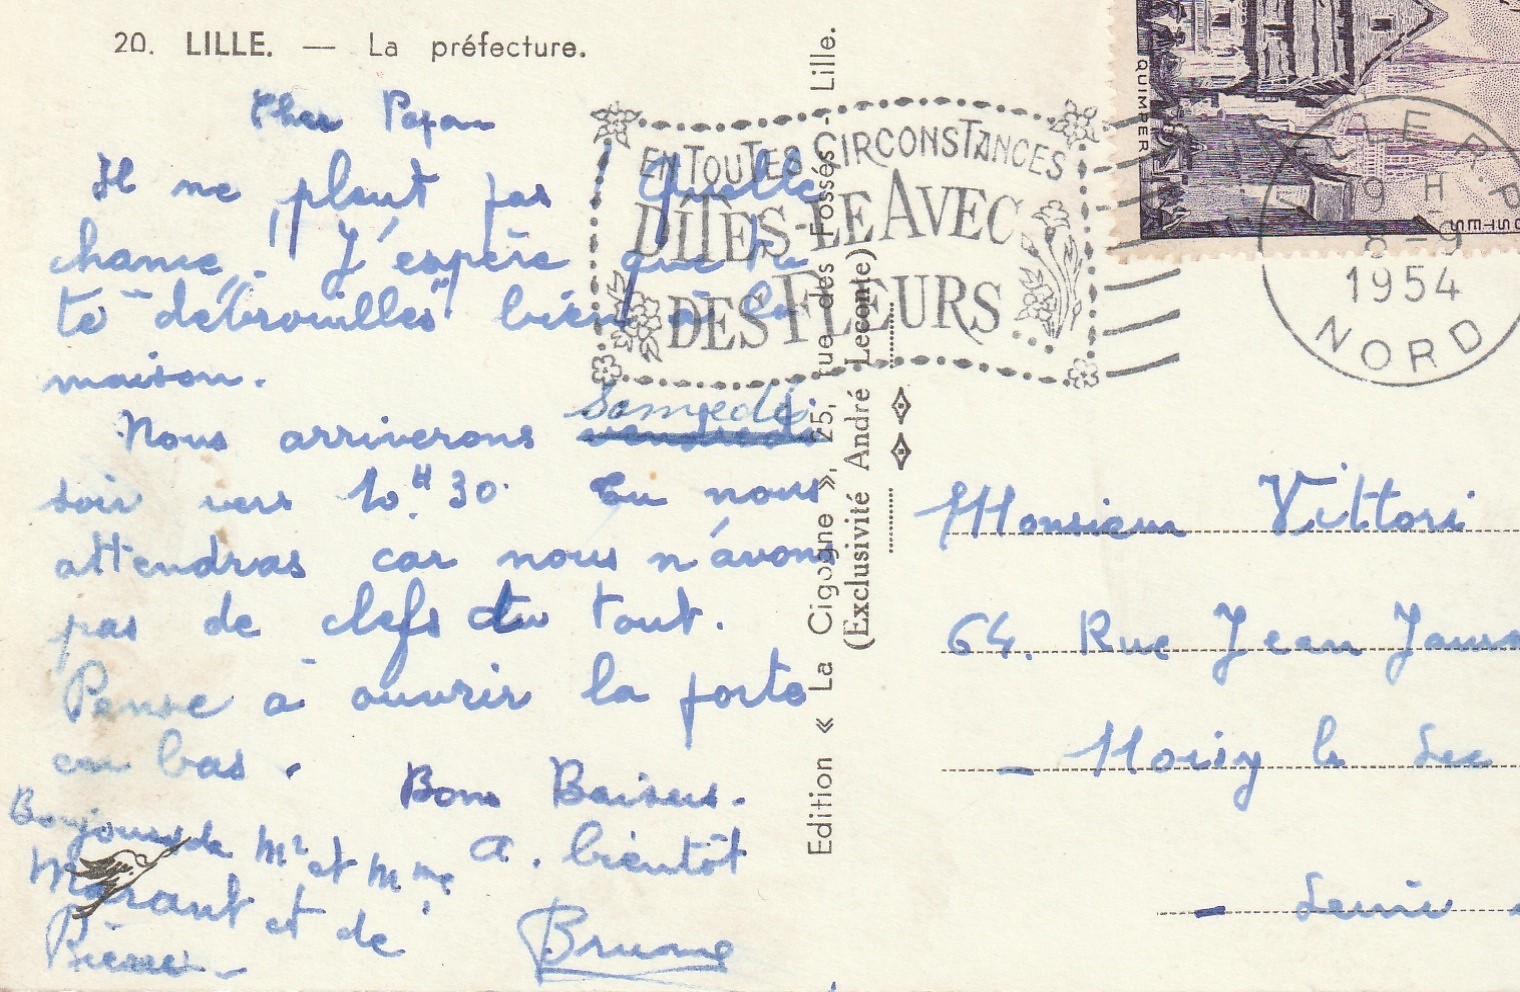 20. LILLE. — La préfecture.
Cher Papa
Il ne pleut pas Quelle
chance. J'espère que tu
te "débrouilles" bien à la
maison.
Nous arriverons vendredi Samedi
soir vers 10.H 30. Tu nous
attendras car nous n'avons
pas de clefs du tout.
Pense à ouvrir la porte
en bas.
Bons Baisers.
A. bientôt
Brune
Bonjour de Mr et Mme
Marant et de
Pierre
Edition « La Cigogne », 25, rue des Fossés - Lille.
(Exclusivité André Leconte)
EN TOUTES CIRCONSTANCES
DITES-LE AVEC
DES FLEURS
QUIMPER
OSTES
LLE R.P
19 H
8-9
1954
NORD
Monsieur Vittori
64. Rue Jean Jaurs
- Noisy le Sec
- Seine